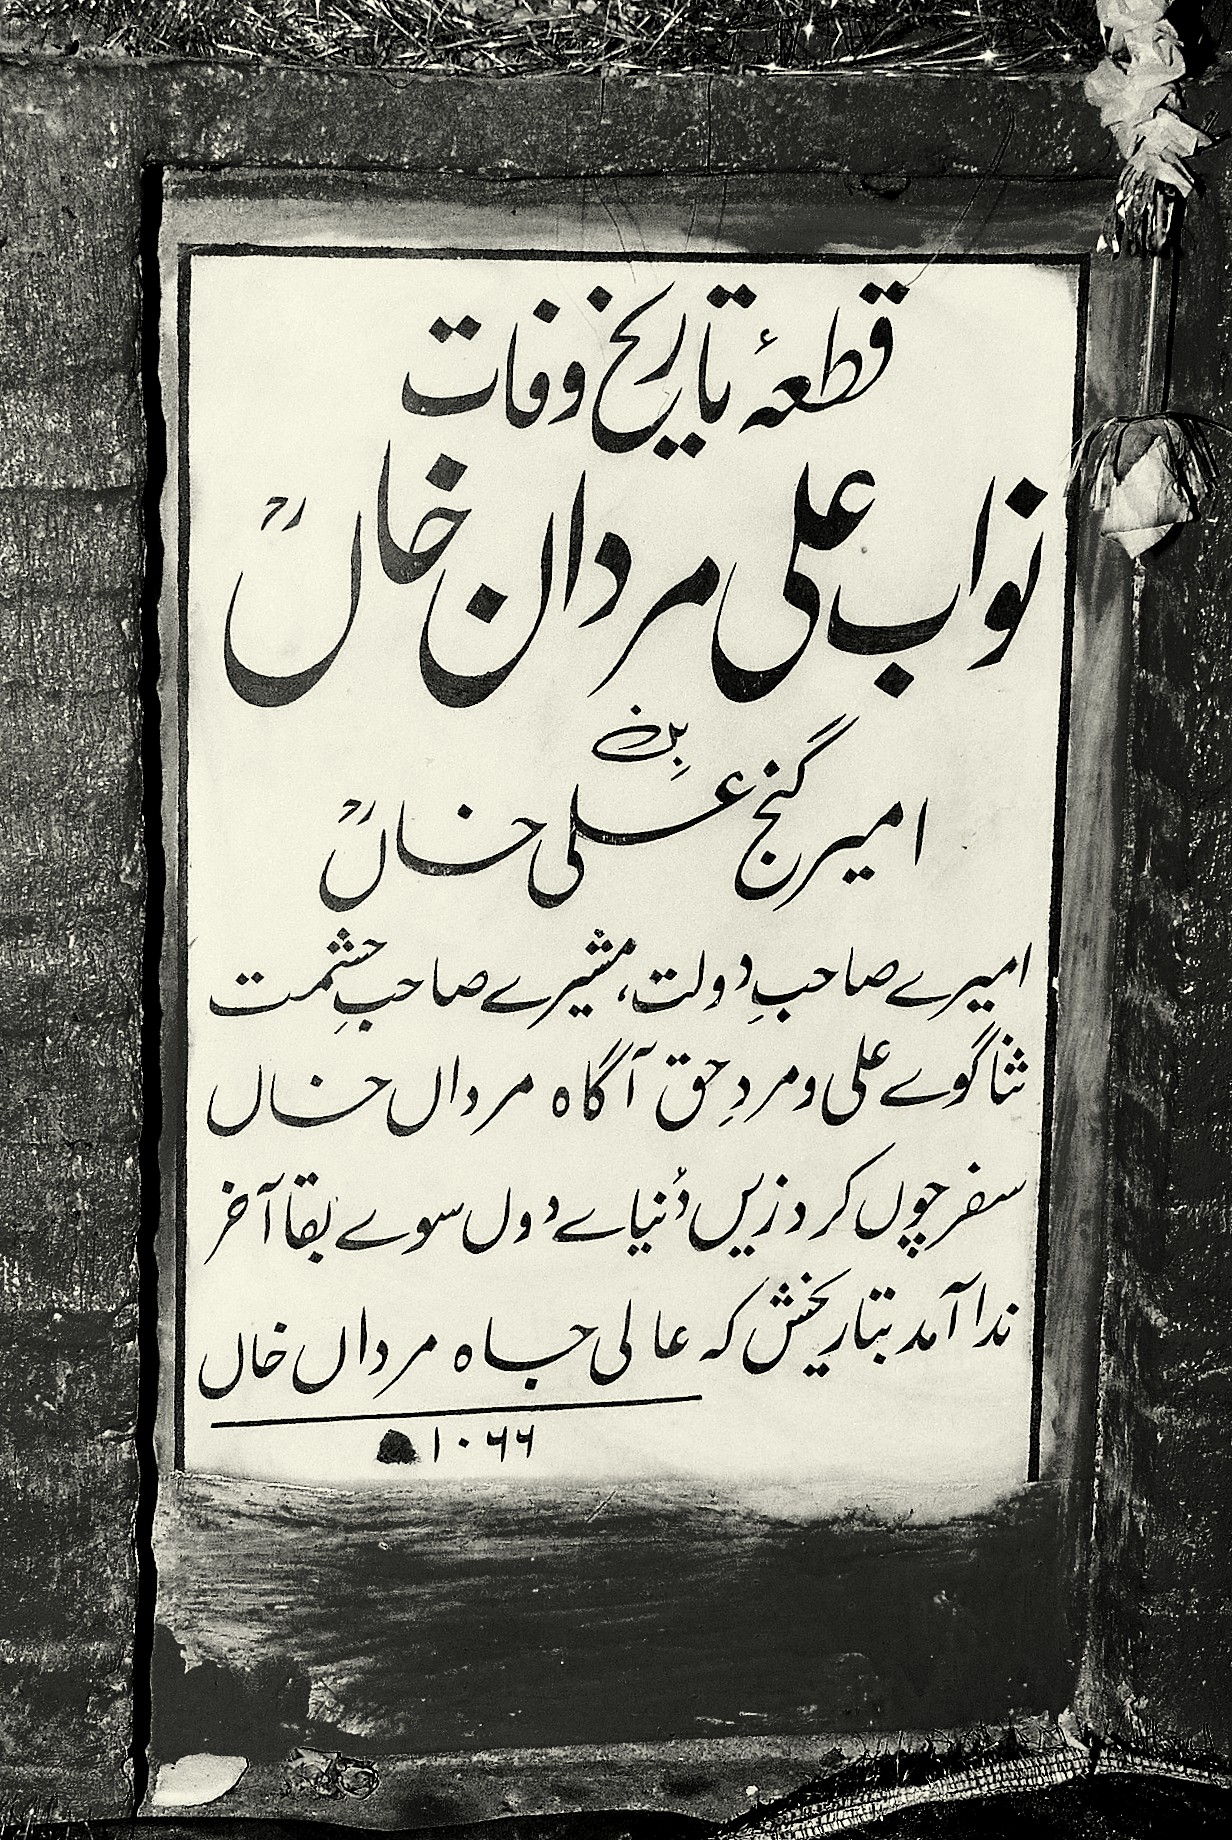 قطعۂ تاریخ وفات
نواب علی مردان خاںؒ
بن
امیر گنج علی خاںؒ
امیرے صاحبِ دولت، مشیرے صاحبِ حشمت
ثنا گوے علی و مردِ حق آگاہ مرداں خاں
سفر چوں کرد زیں دُنیاے دوں سوے بقا آخر
ندا آمد بتاریخش کہ عالی جاہ مرداں خاں
۱۰۶۶